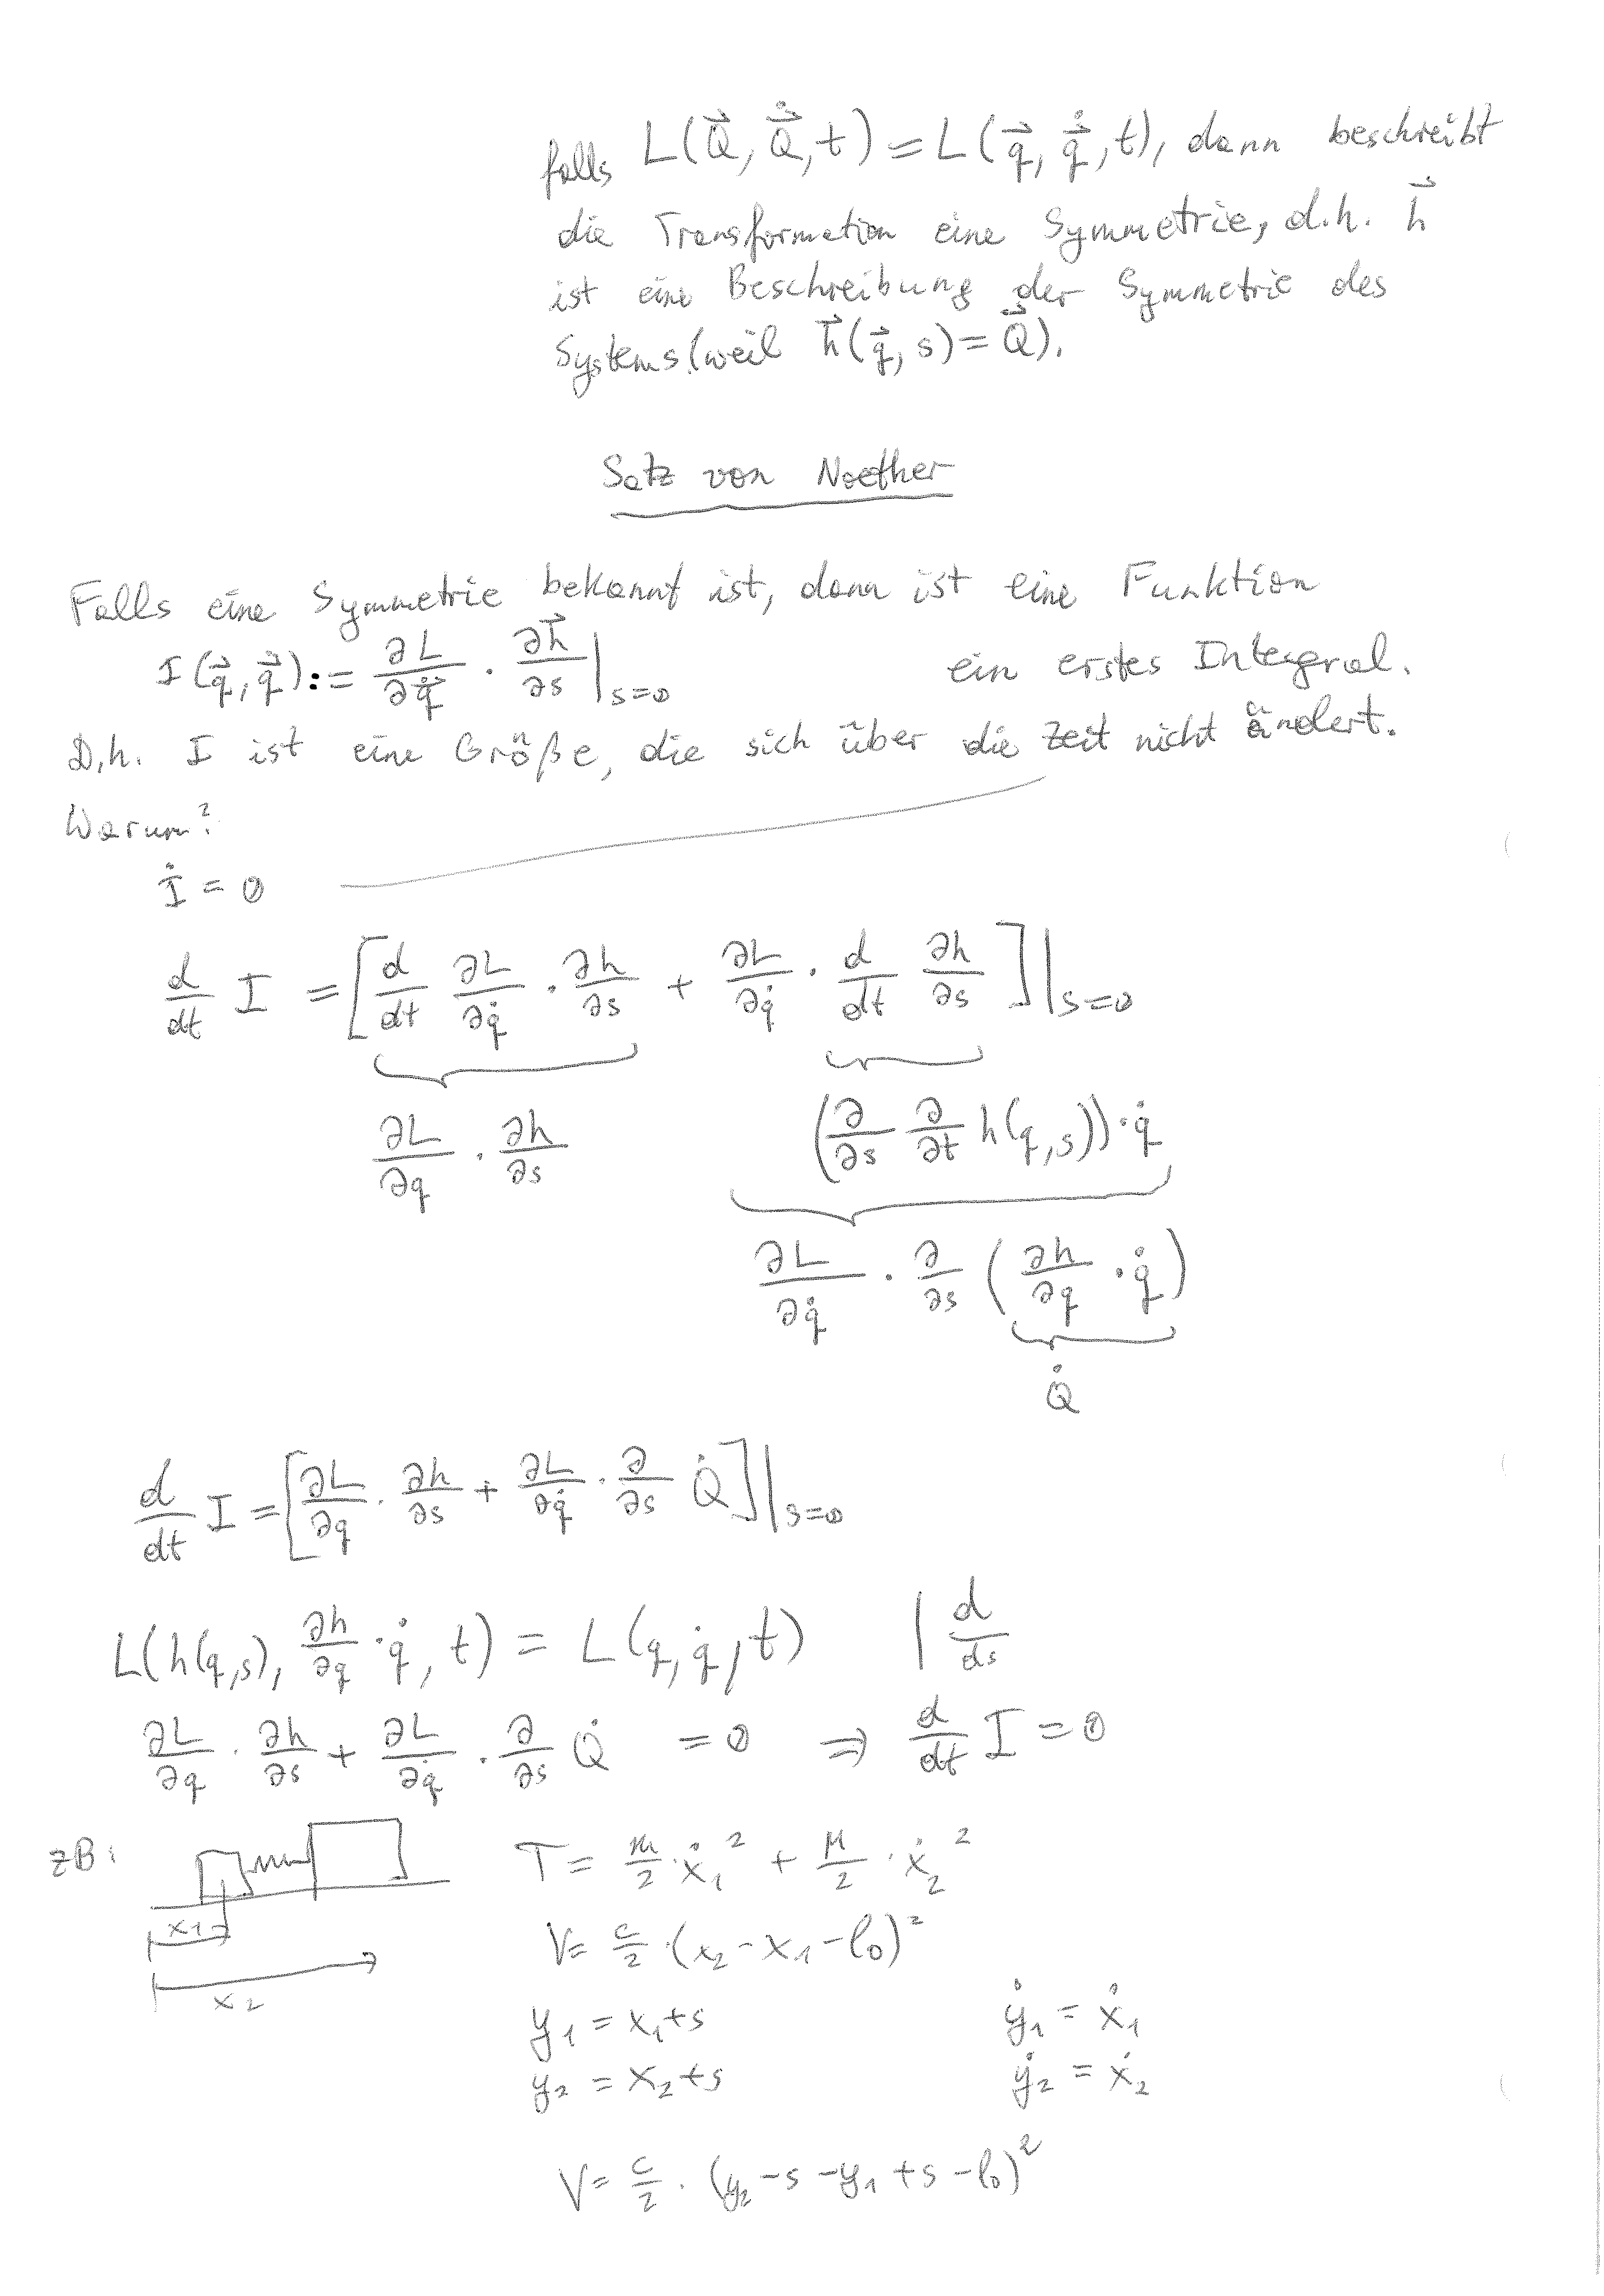 falls L(Q⃗, Q⃗̇, t) = L(q⃗, q⃗̇, t), dann beschreibt
die Transformation eine Symmetrie, d.h. h⃗
ist eine Beschreibung der Symmetrie des
Systems (weil h⃗(q⃗, s) = Q⃗).
Satz von Noether
Falls eine Symmetrie bekannt ist, dann ist eine Funktion
I(q⃗, q⃗̇) := ∂L/∂q⃗̇ · ∂h⃗/∂s |s=0 ein erstes Integral.
D.h. I ist eine Größe, die sich über die Zeit nicht ändert.
Warum?
İ = 0
d/dt I = [d/dt ∂L/∂q̇ · ∂h/∂s + ∂L/∂q̇ · d/dt ∂h/∂s]|s=0
∂L/∂q · ∂h/∂s (∂/∂s ∂/∂t h(q,s)) · q̇
∂L/∂q̇ · ∂/∂s (∂h/∂q · q̇)
Q̇
d/dt I = [∂L/∂q · ∂h/∂s + ∂L/∂q̇ · ∂/∂s Q̇]|s=0
L(h(q,s), ∂h/∂q · q̇, t) = L(q, q̇, t) | d/ds
∂L/∂q · ∂h/∂s + ∂L/∂q̇ · ∂/∂s Q̇ = 0 ⇒ d/dt I = 0
zB: T = m/2 · ẋ₁² + M/2 · ẋ₂²
x₁
V = c/2 · (x₂ - x₁ - l₀)²
x₂
y₁ = x₁ + s ẏ₁ = ẋ₁
y₂ = x₂ + s ẏ₂ = ẋ₂
V = c/2 · (y₂ - s - y₁ + s - l₀)²